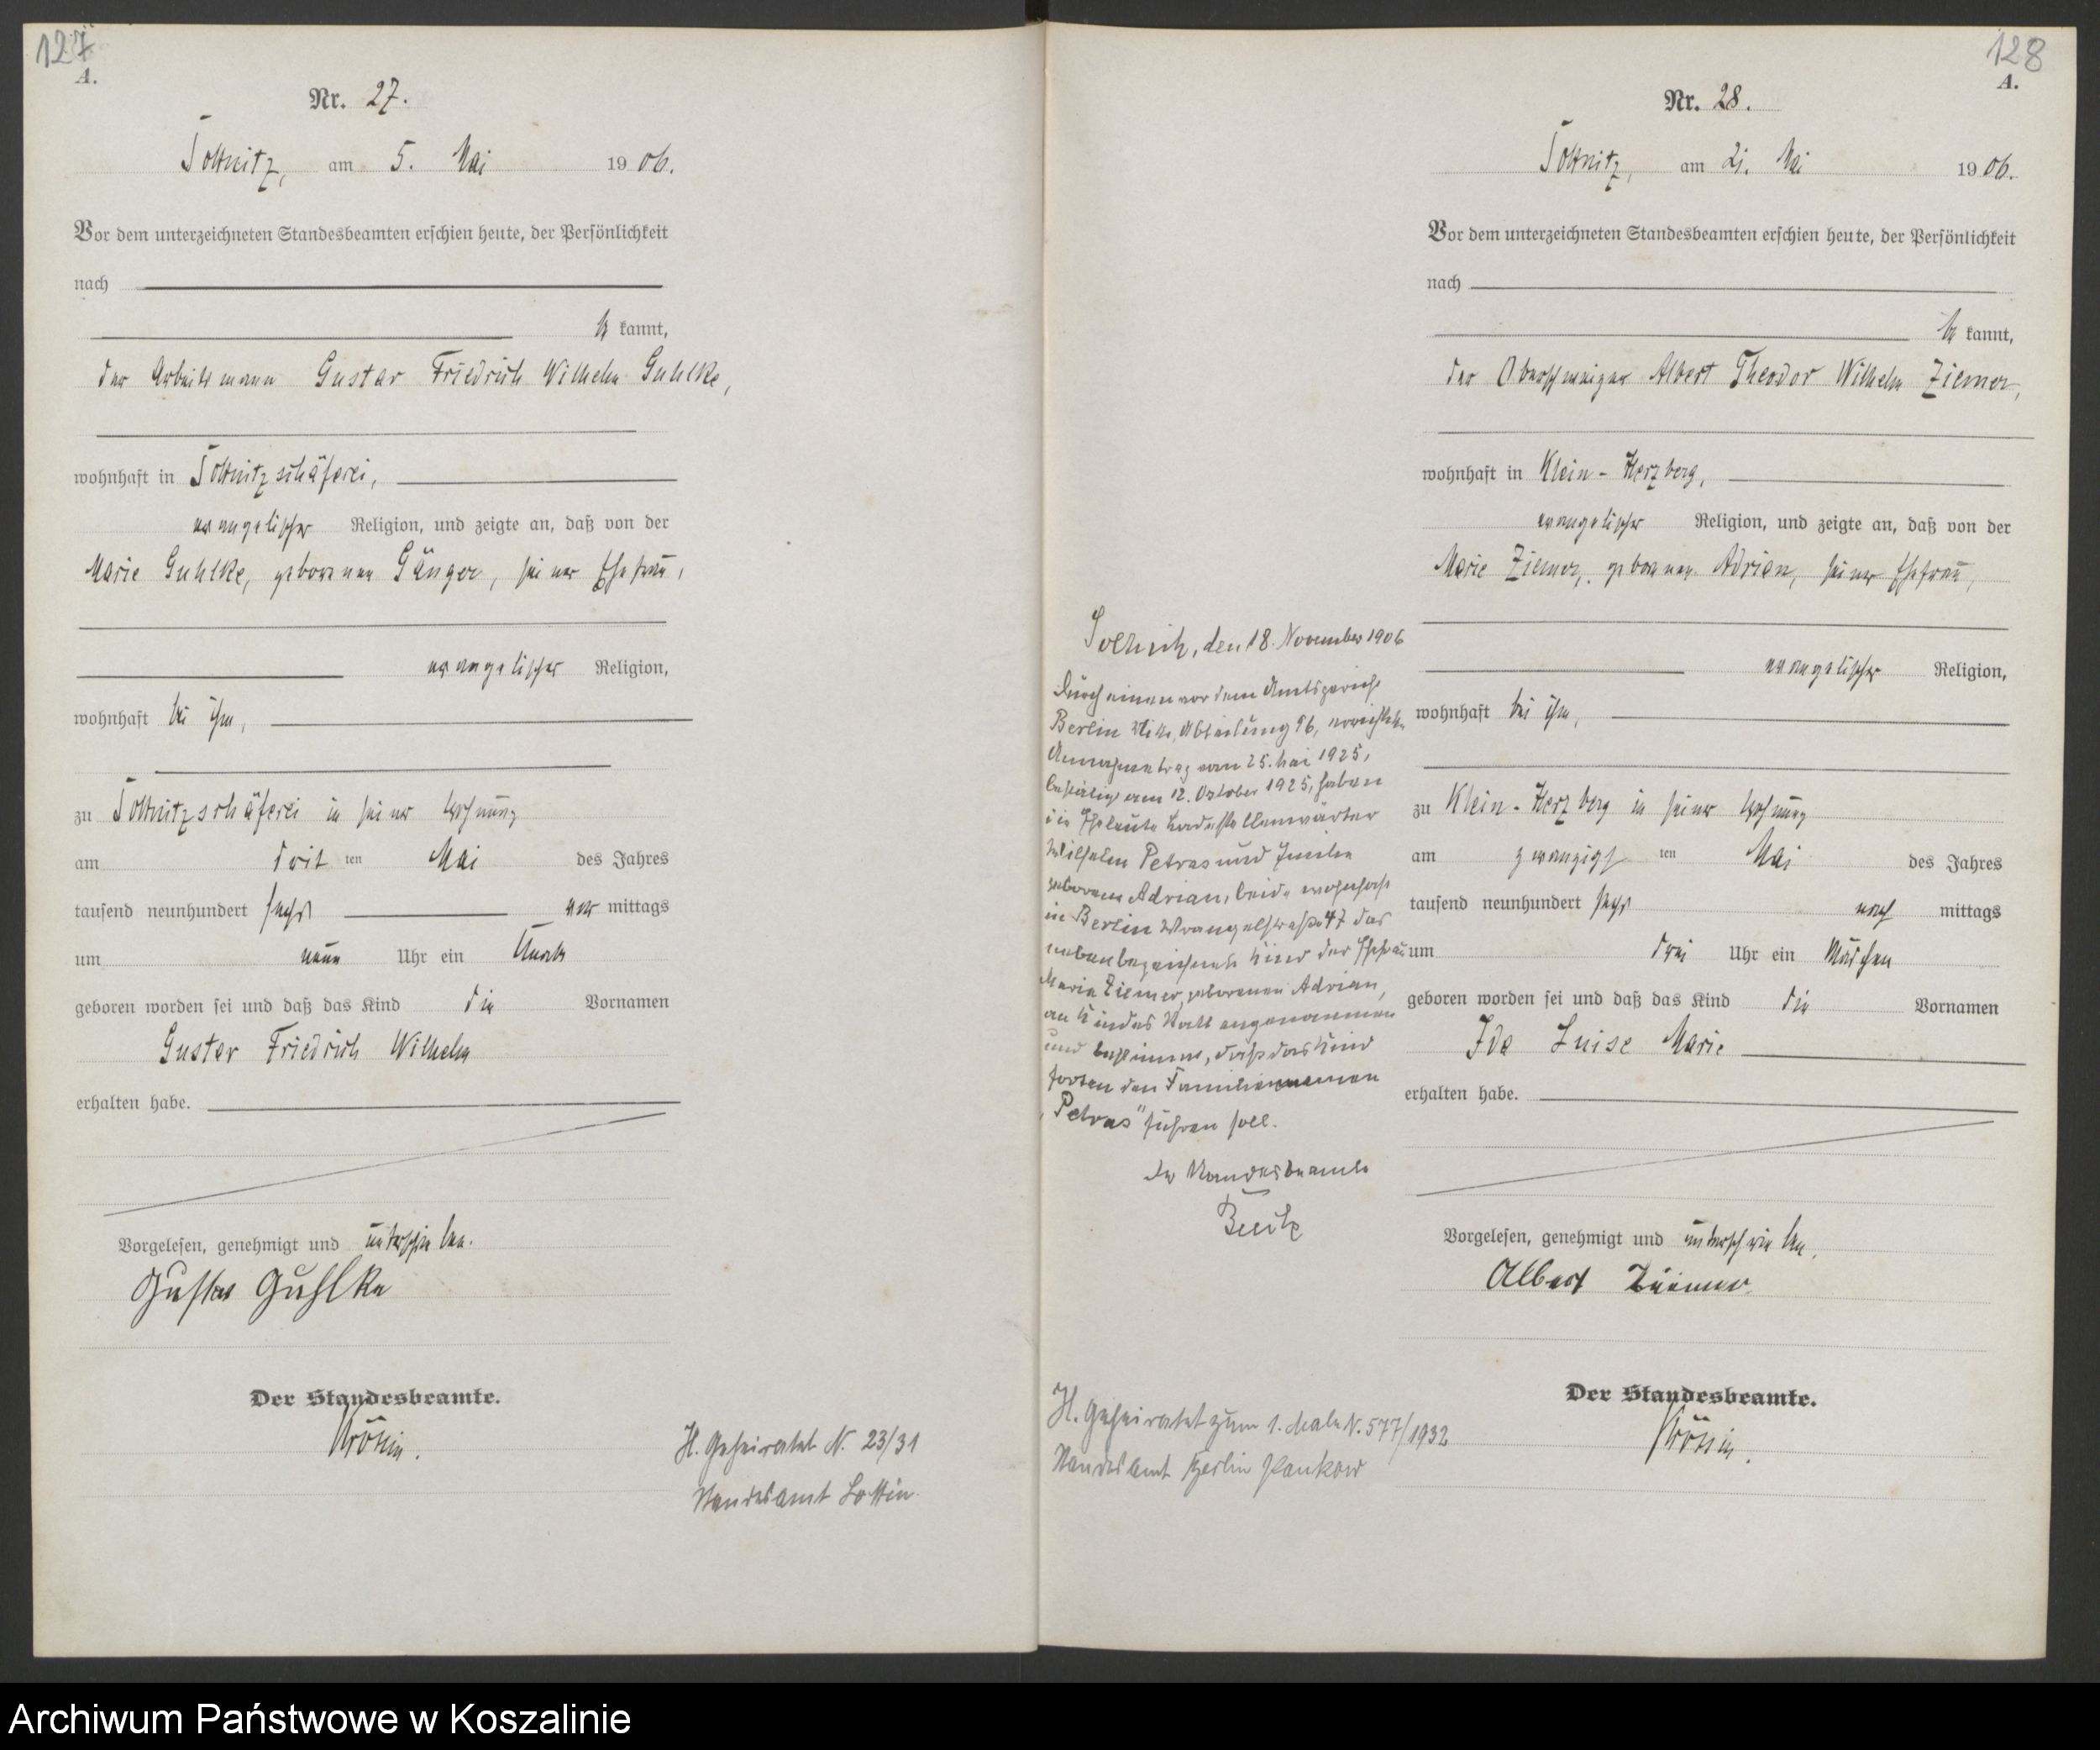 127
A.
Nr. 27.
Soltnitz, am 5. Mai 1906.
Vor dem unterzeichneten Standesbeamten erschien heute, der Persönlichkeit
nach
be kannt,
der Arbeitsmann Gustav Friedrich Wilhelm Guhlke,
wohnhaft in Soltnitzschäferei,
evangelischer Religion, und zeigte an, daß von der
Marie Guhlke, geborenen Gänger, seiner Ehefrau,
evangelischer Religion,
wohnhaft bei ihm,
zu Soltnitzschäferei in seiner Wohnung
am dritten Mai des Jahres
tausend neunhundert sechs vor mittags
um neun Uhr ein Knabe
geboren worden sei und daß das Kind die Vornamen
Gustav Friedrich Wilhelm
erhalten habe.
Vorgelesen, genehmigt und unterschrieben.
Gustav Guhlke
Der Standesbeamte.
H. Geheiratet N. 23/31
Standesamt Lottin.
128
A.
Nr. 28.
Soltnitz, am 21. Mai 1906.
Vor dem unterzeichneten Standesbeamten erschien heute, der Persönlichkeit
nach
be kannt,
der Oberschweizer Albert Theodor Wilhelm Ziemer,
wohnhaft in Klein-Herzberg,
evangelischer Religion, und zeigte an, daß von der
Marie Ziemer, geborenen Adrian, seiner Ehefrau,
evangelischer Religion,
wohnhaft bei ihm,
zu Klein-Herzberg in seiner Wohnung
am zwanzigsten Mai des Jahres
tausend neunhundert sechs nach mittags
um drei Uhr ein Mädchen
geboren worden sei und daß das Kind die Vornamen
Ida Luise Marie
erhalten habe.
Vorgelesen, genehmigt und unterschrieben.
Albert Ziemer
Der Standesbeamte.
Soltnitz, den 18. November 1906
Durch einen vor dem Amtsgericht
Berlin Mitte, Abteilung 96, errichteten
Annahmevertrag vom 25. Mai 1925,
bestätigt am 12. Oktober 1925, haben
die Eheleute
Wilhelm Petras und
geborene Adrian, beide wohnhaft
in Berlin Wrangelstraße 47 das
nebenbezeichnete Kind der Ehefrau
Marie Ziemer, geborenen Adrian,
an Kindes Statt angenommen
und bestimmt, daß das Kind
fortan den Familiennamen
„Petras" führen soll.
Der Standesbeamte
H. Geheiratet zum 1. Male N. 577/1932
Standesamt Berlin Pankow
Archiwum Państwowe w Koszalinie